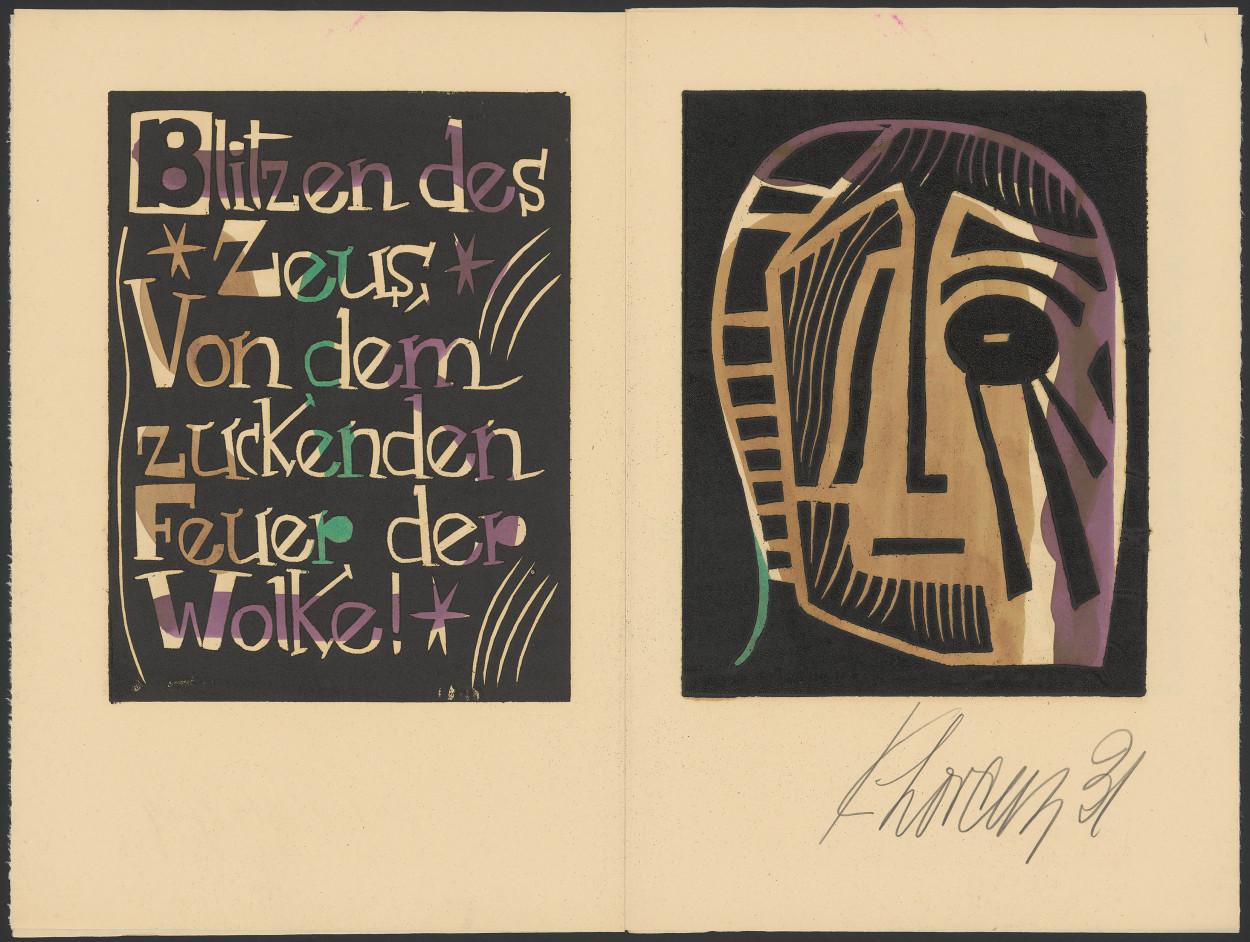 Blitzen des
Zeus,
Von dem
zuckenden
Feuer der
Wolke!
KLorenz 31